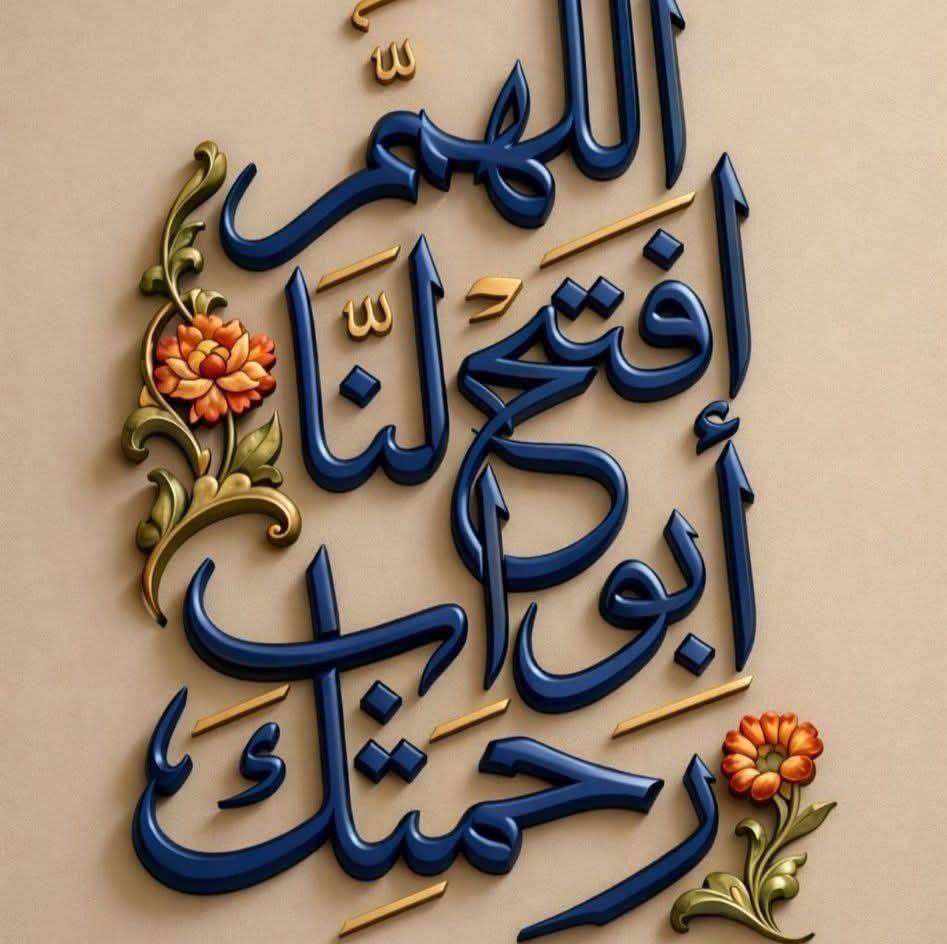 اللهمّ
افتَحْ لَنَّا
أَبوَابَ
رَحمَتِكَ